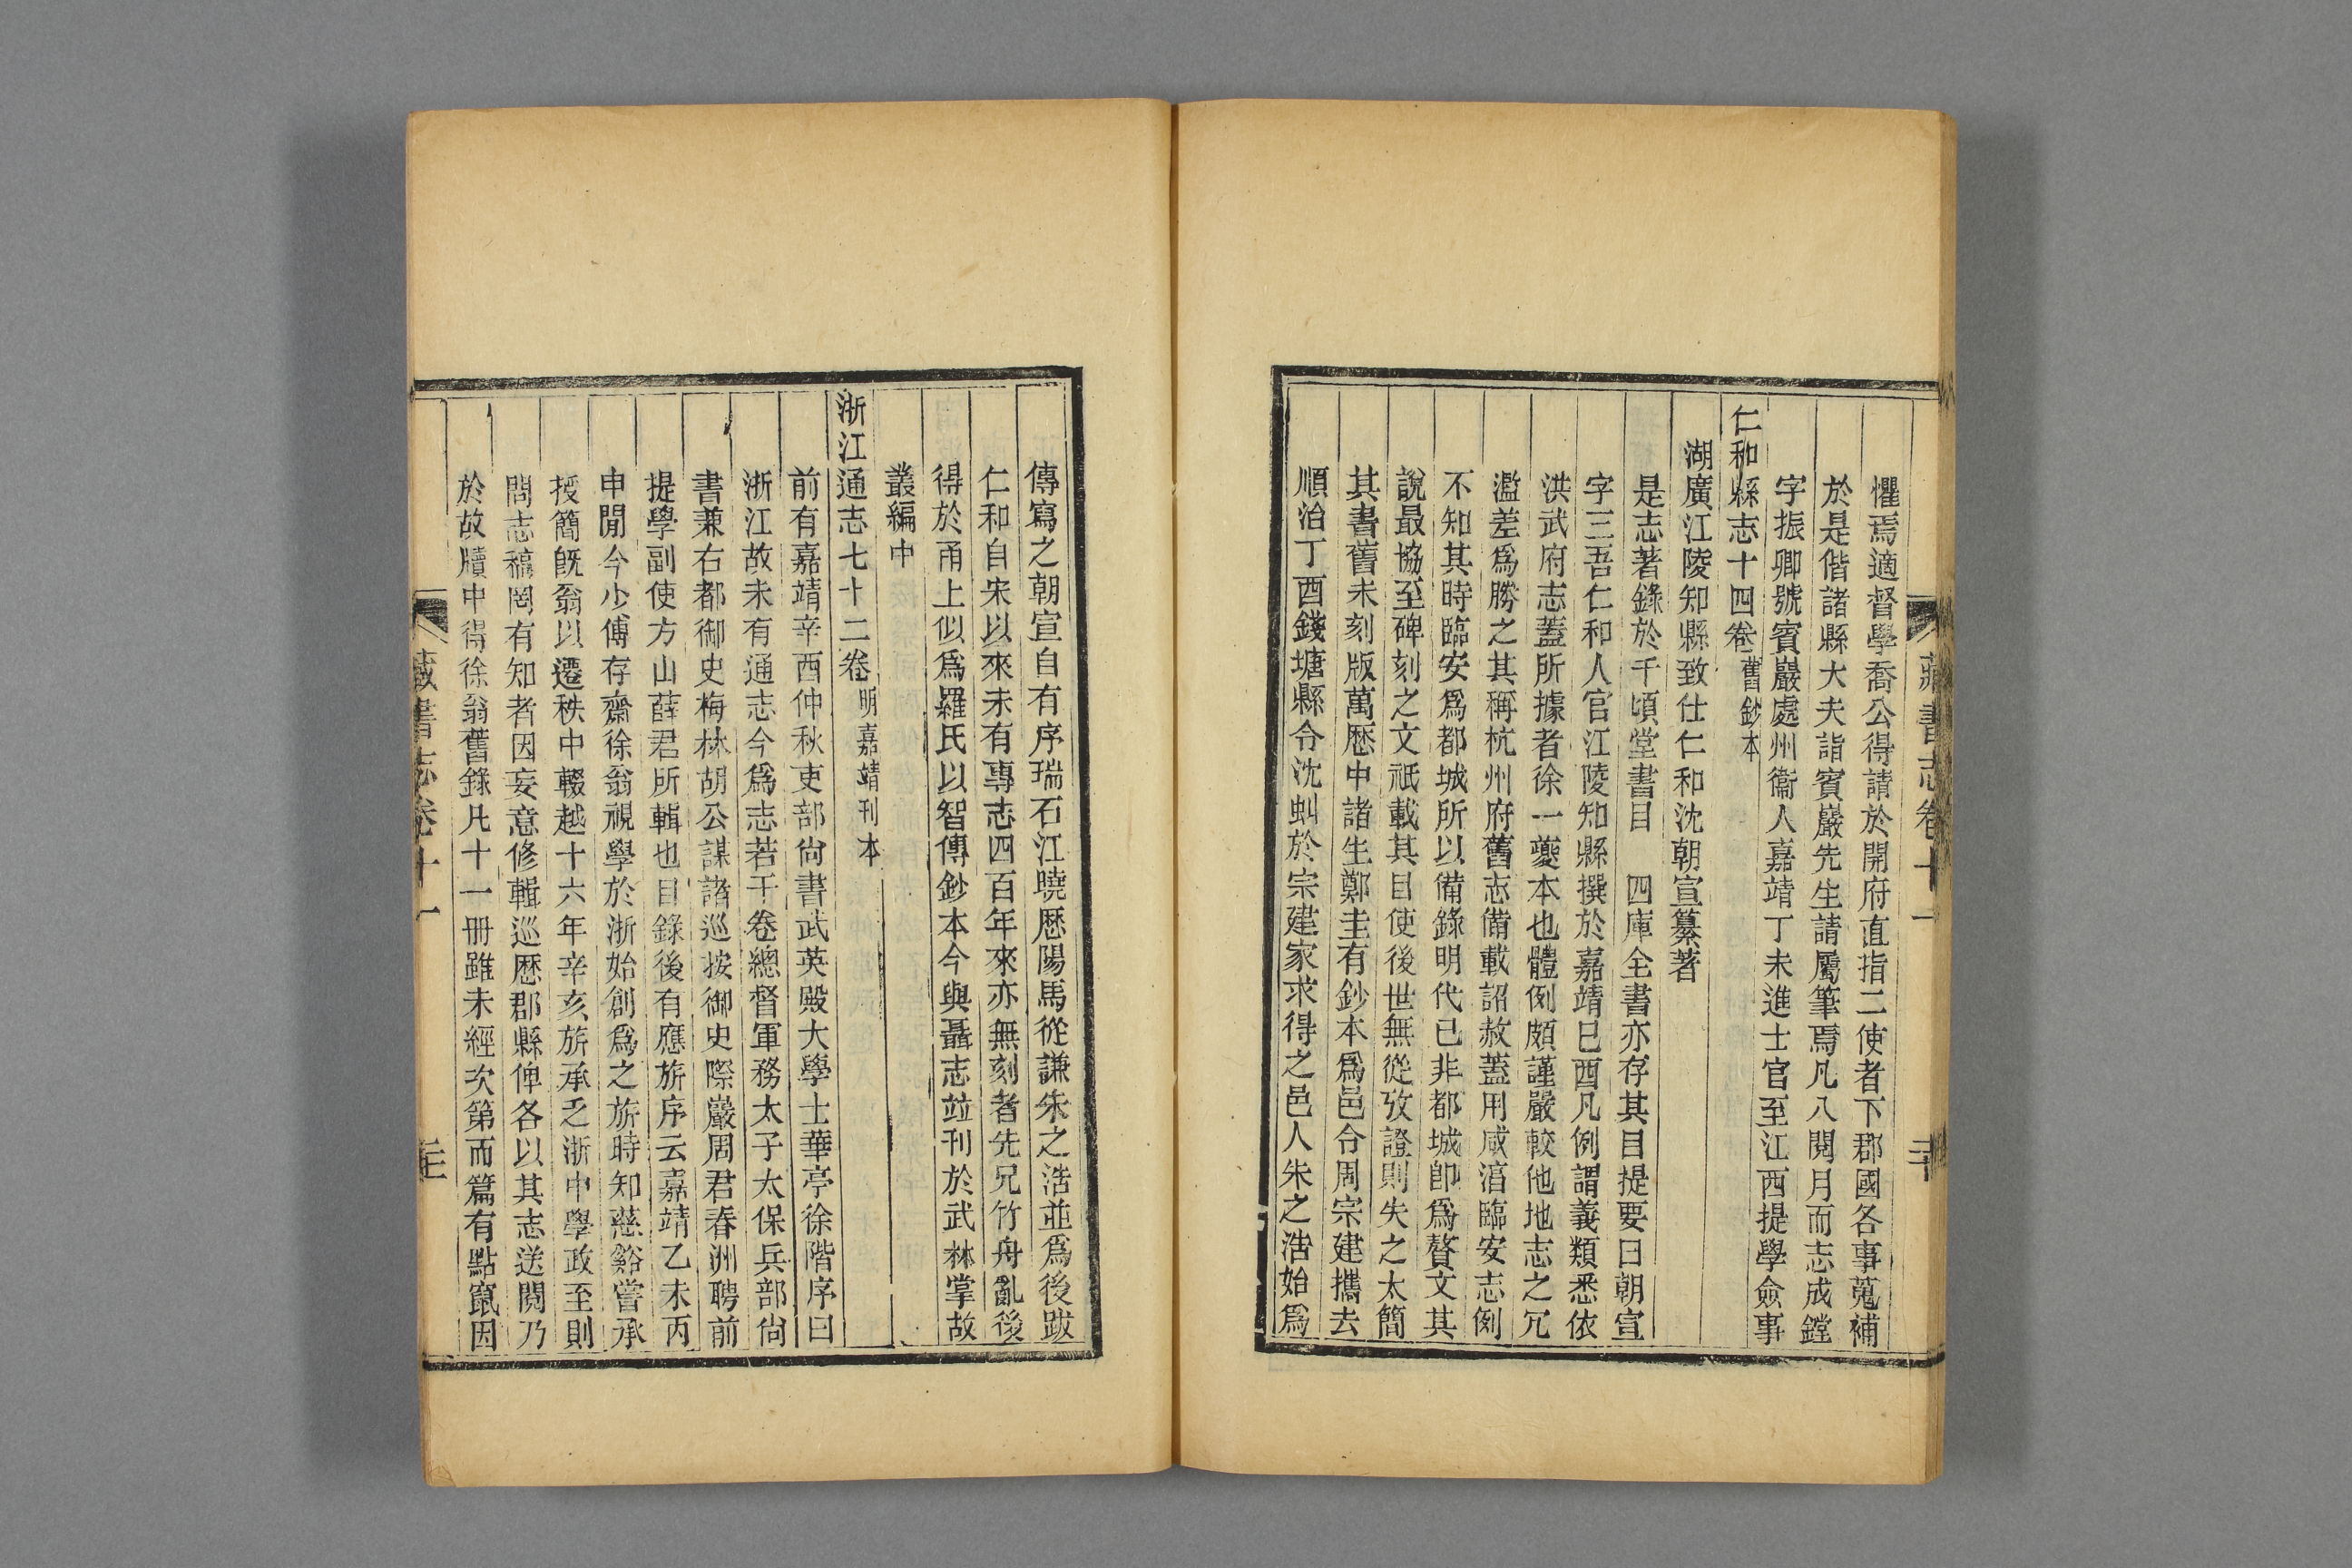 藏書志卷十一
懼焉適督學喬公得請於開府直指二使者下郡國各事蒐補
於是偕諸縣大夫詣賓巖先生請屬筆焉凡八閱月而志成鏜
字振卿號賓巖處州衞人嘉靖丁未進士官至江西提學僉事
仁和縣志十四卷舊鈔本
湖廣江陵知縣致仕仁和沈朝宣纂著
是志著錄於千頃堂書目 四庫全書亦存其目提要曰朝宣
字三吾仁和人官江陵知縣撰於嘉靖巳酉凡例謂義類悉依
洪武府志蓋所據者徐一夔本也體例頗謹嚴較他地志之冗
濫差爲勝之其稱杭州府舊志備載詔赦蓋用咸淳臨安志例
不知其時臨安爲都城所以備錄明代已非都城卽爲贅文其
說最協至碑刻之文祇載其目使後世無從攷證則失之太簡
其書舊未刻版萬歷中諸生鄭圭有鈔本爲邑令周宗建攜去
順治丁酉錢塘縣令沈虯於宗建家求得之邑人朱之浩始爲
傳寫之朝宣自有序瑞石江曉歷陽馬從謙朱之浩並爲後跋
仁和自宋以來未有專志四百年來亦無刻者先兄竹舟亂後
得於甬上似爲羅氏以智傳鈔本今與聶志竝刊於武林掌故
叢編中
浙江通志七十二卷明嘉靖刊本
前有嘉靖辛酉仲秋吏部尙書武英殿大學士華亭徐階序曰
浙江故未有通志今爲志若干卷總督軍務太子太保兵部尙
書兼右都御史梅林胡公謀諸巡按御史際巖周君春洲聘前
提學副使方山薛君所輯也目錄後有應旂序云嘉靖乙未丙
申閒今少傅存齋徐翁視學於浙始創爲之旂時知慈谿嘗承
授簡旣翁以遷秩中輟越十六年辛亥旂承乏浙中學政至則
問志稿罔有知者因妄意修輯巡歷郡縣俾各以其志送閱乃
於故牘中得徐翁舊錄凡十一冊雖未經次第而篇有點竄因
藏書志卷十一